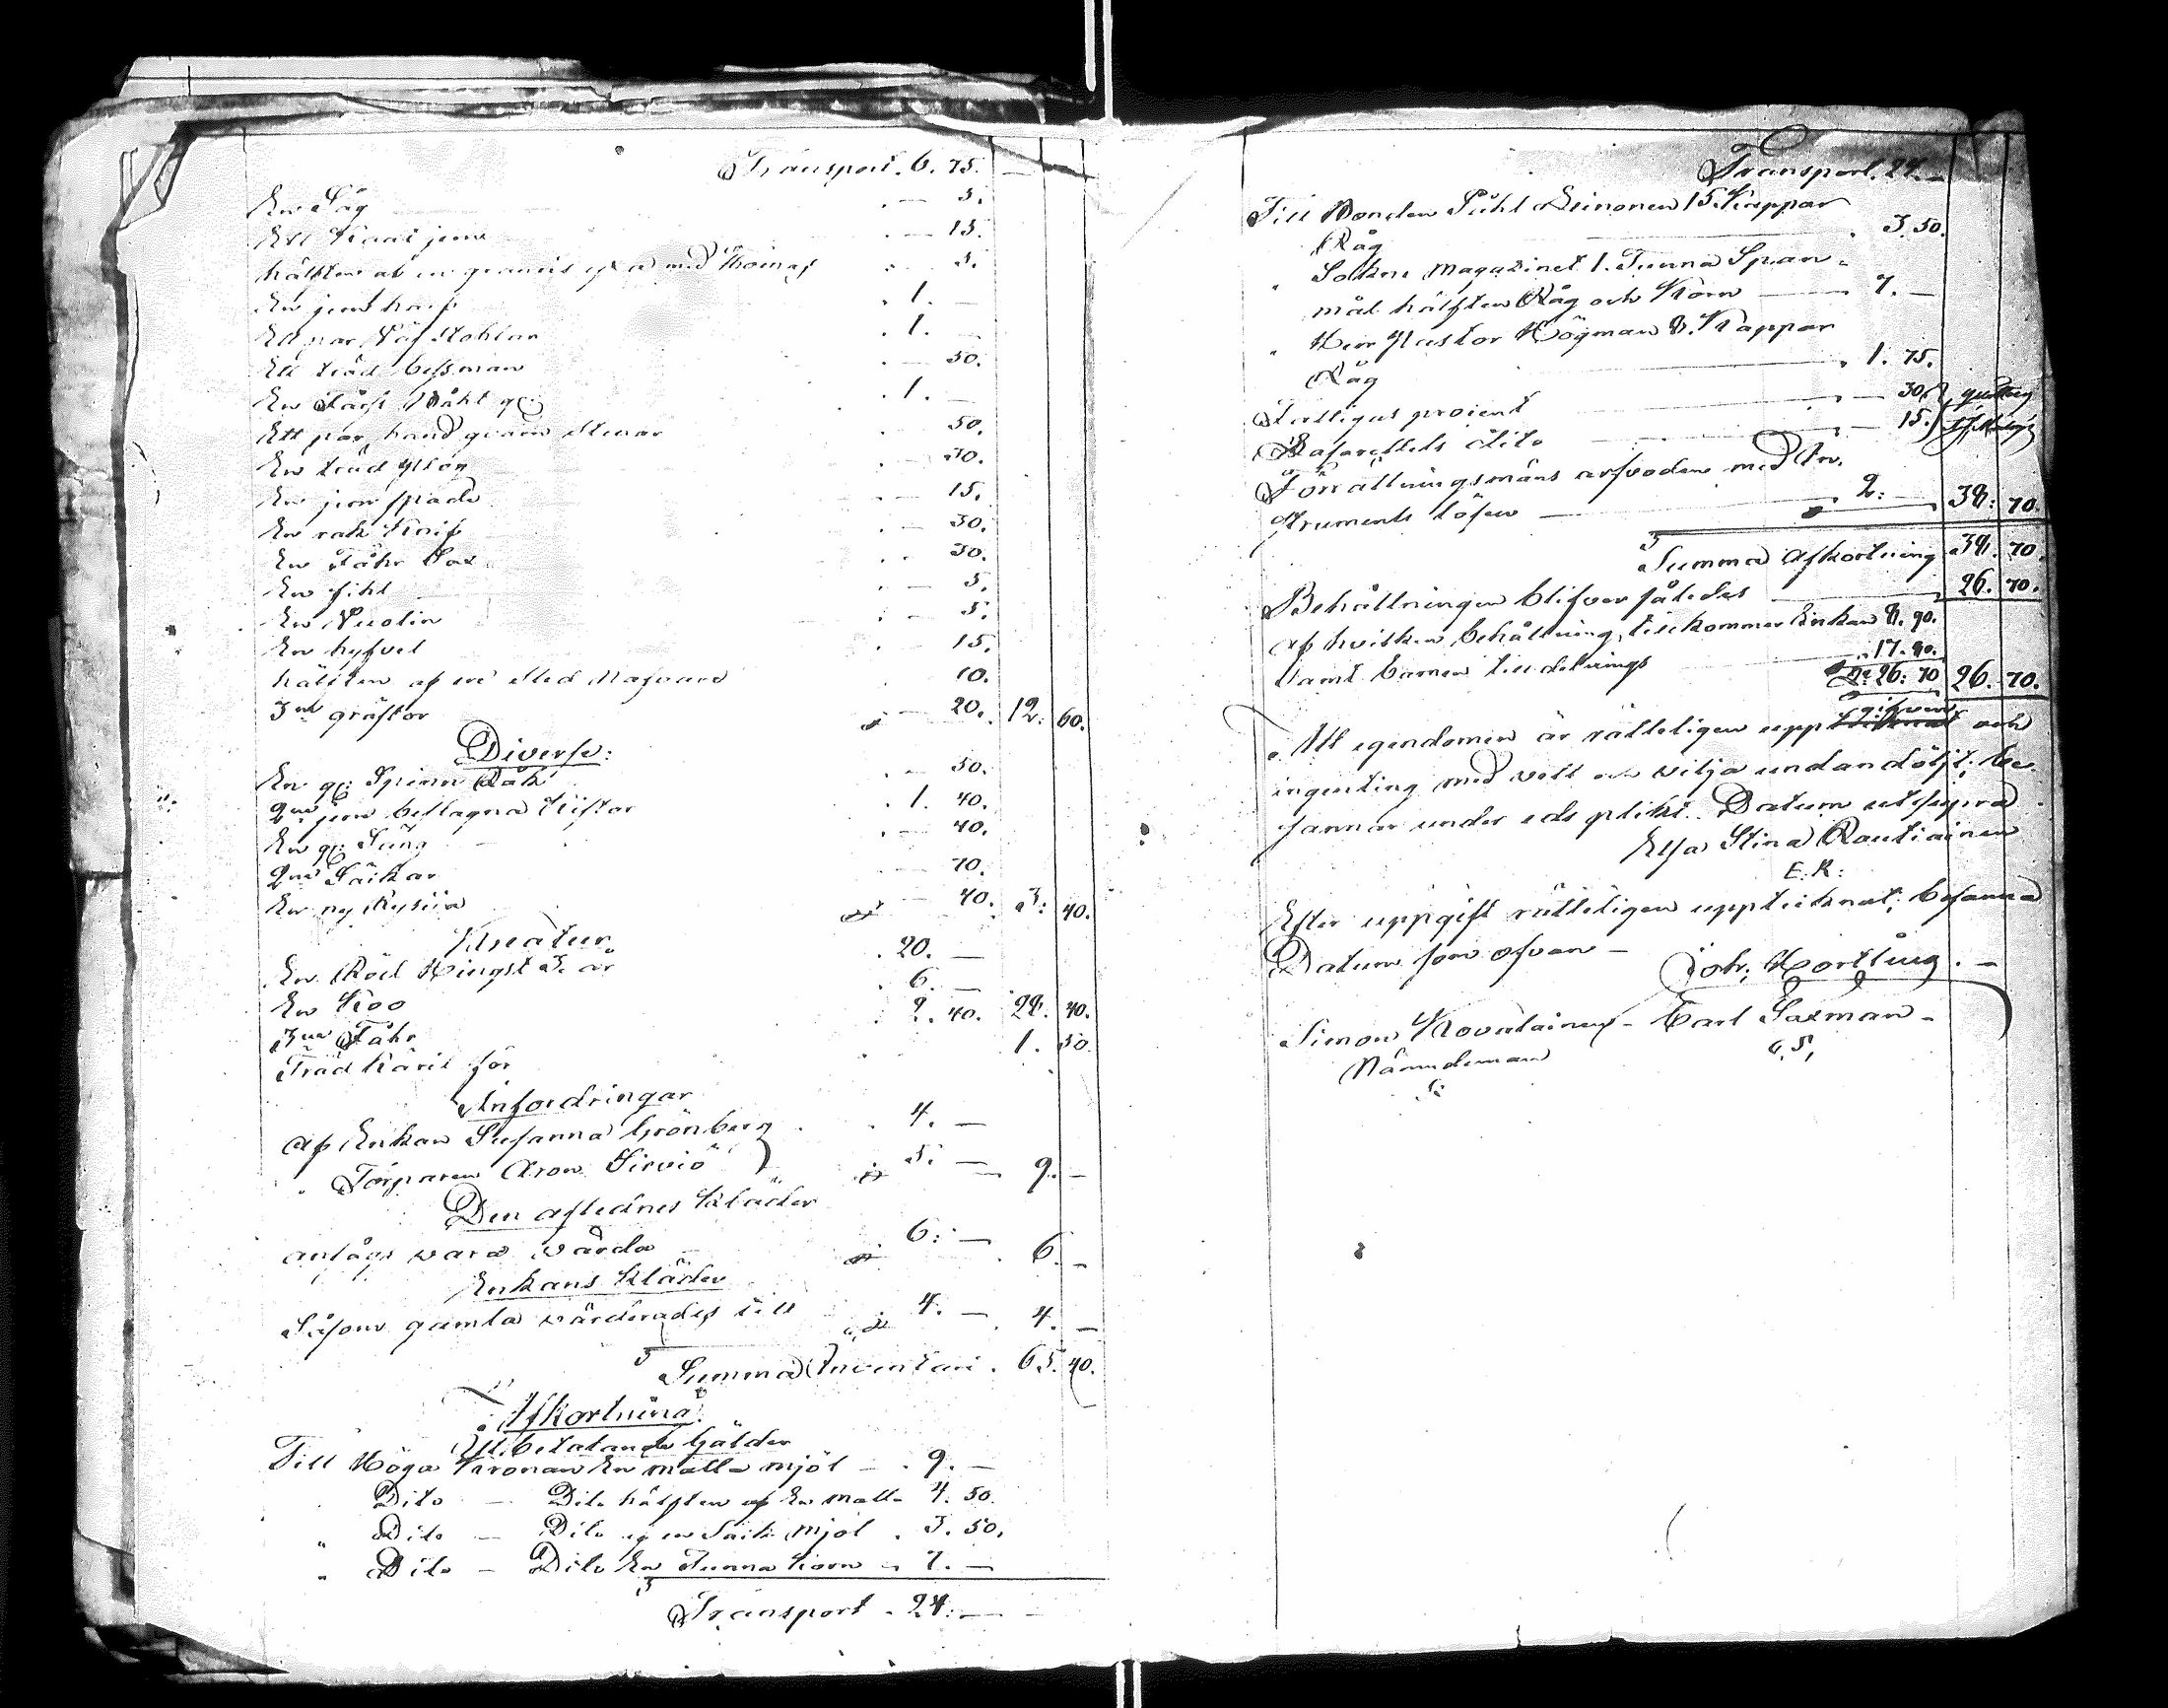 Transport . 6. 75. —
En Såg . — 5.
Ett jern . — 15.
hälften af en med Thomas . — 5.
En jern harf . 1. —
Ett par . 1. —
Ett träd besman . — 50.
En Båht gl: . 1. —
Ett par hand qvarn stenar . 50.
En träd . — 30.
En jern spade . — 15.
En rak Knif . — 30.
En Fåhr Sax . . 30.
En fihl . — 5.
En . — 5.
En hyfvel . — 15.
hälften af en . 10.
3ne gräftor — 20. 12: 60.
Diverse:
En gl: Spinn Råk . — 50.
2ne jern beslagna Kistor . 1. 40.
En gl: Säng . — 40.
2ne Säckar — 70.
En ny — 40. 3: 40.
Kreatur.
En Röd Hingst 3. år . 20. —
En Koo . 6. —
3ne Fåhr . 2. 40. 28. 40.
Träd Käril för 1. 30.
Anfordringar
af Enkan Susanna Grönberg . 4. —
" Torparen Aron Sirviö 5. — 9. —
Den aflednes Kläder
antågs vara värda 6: — 6. —
Enkans Kläder
Såsom gamla värderades till 4. — 4. —
Summa Inventari . 65. 40.
Afkortning.
Utbetalande Gälder
Till Höga Kronan En matta mjöl — . 9. —
Dito — Dito hälften af En matta 4. 50.
" Dito — Dito en Säck mjöl . 3. 50.
" Dito — Dito En Tunna Korn — 7. —
Transport . 24: —
Transport. 24. —
Till Bonden Påhl Leinonen 15. Kappar
Råg . 3. 50.
" Sokne magazinet 1. Tunna Span-
mål hälften Råg och Korn — 7. —
" Herr Pastor Högman 8. Kappar
Råg . 1. 75.
Fattigas procent — 30.
Lasarettets dito — 15.
Förrättningsmäns arfvoden med In-
struments lösen — 2: — 38: 70.
Summa Afkortning 38. 70.
Behållningen blifver således 26. 70.
af hvilken behållning tillkommer Enkan 8. 90.
samt barnen till delnings . 17. 80.
26: 70 26. 70.
gifven
Att egendomen är rätteligen upp och
ingenting med vett och vilja undandöljt; be-
sannar under eds plikt. Datum utsupra
Elsa Stina Rautiainen
E. R:
Efter uppgift rätteligen uppteiknat; besanna
Datum som ofvan —
Joh: Hortling . —
Simon Kovalainen — Carl Saxman —
Nämndeman